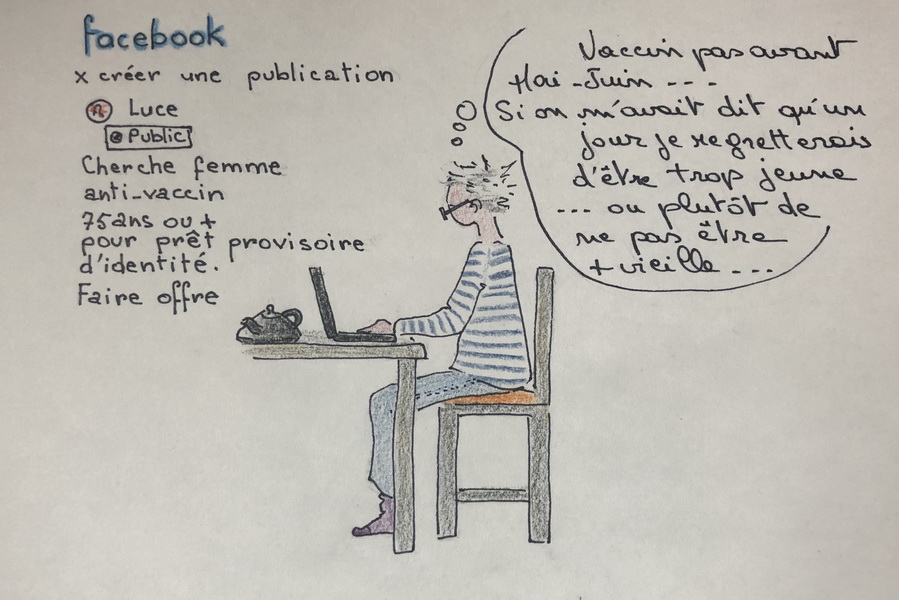 facebook
x créer une publication
Luce
Public
Cherche femme
anti-vaccin
75ans ou +
pour prêt provisoire
d'identité.
Faire offre
Vaccin pas avant
Mai-Juin ---
Si on m'avait dit qu'un
jour je regretterais
d'être trop jeune
... ou plutôt de
ne pas être
+ vieille ...